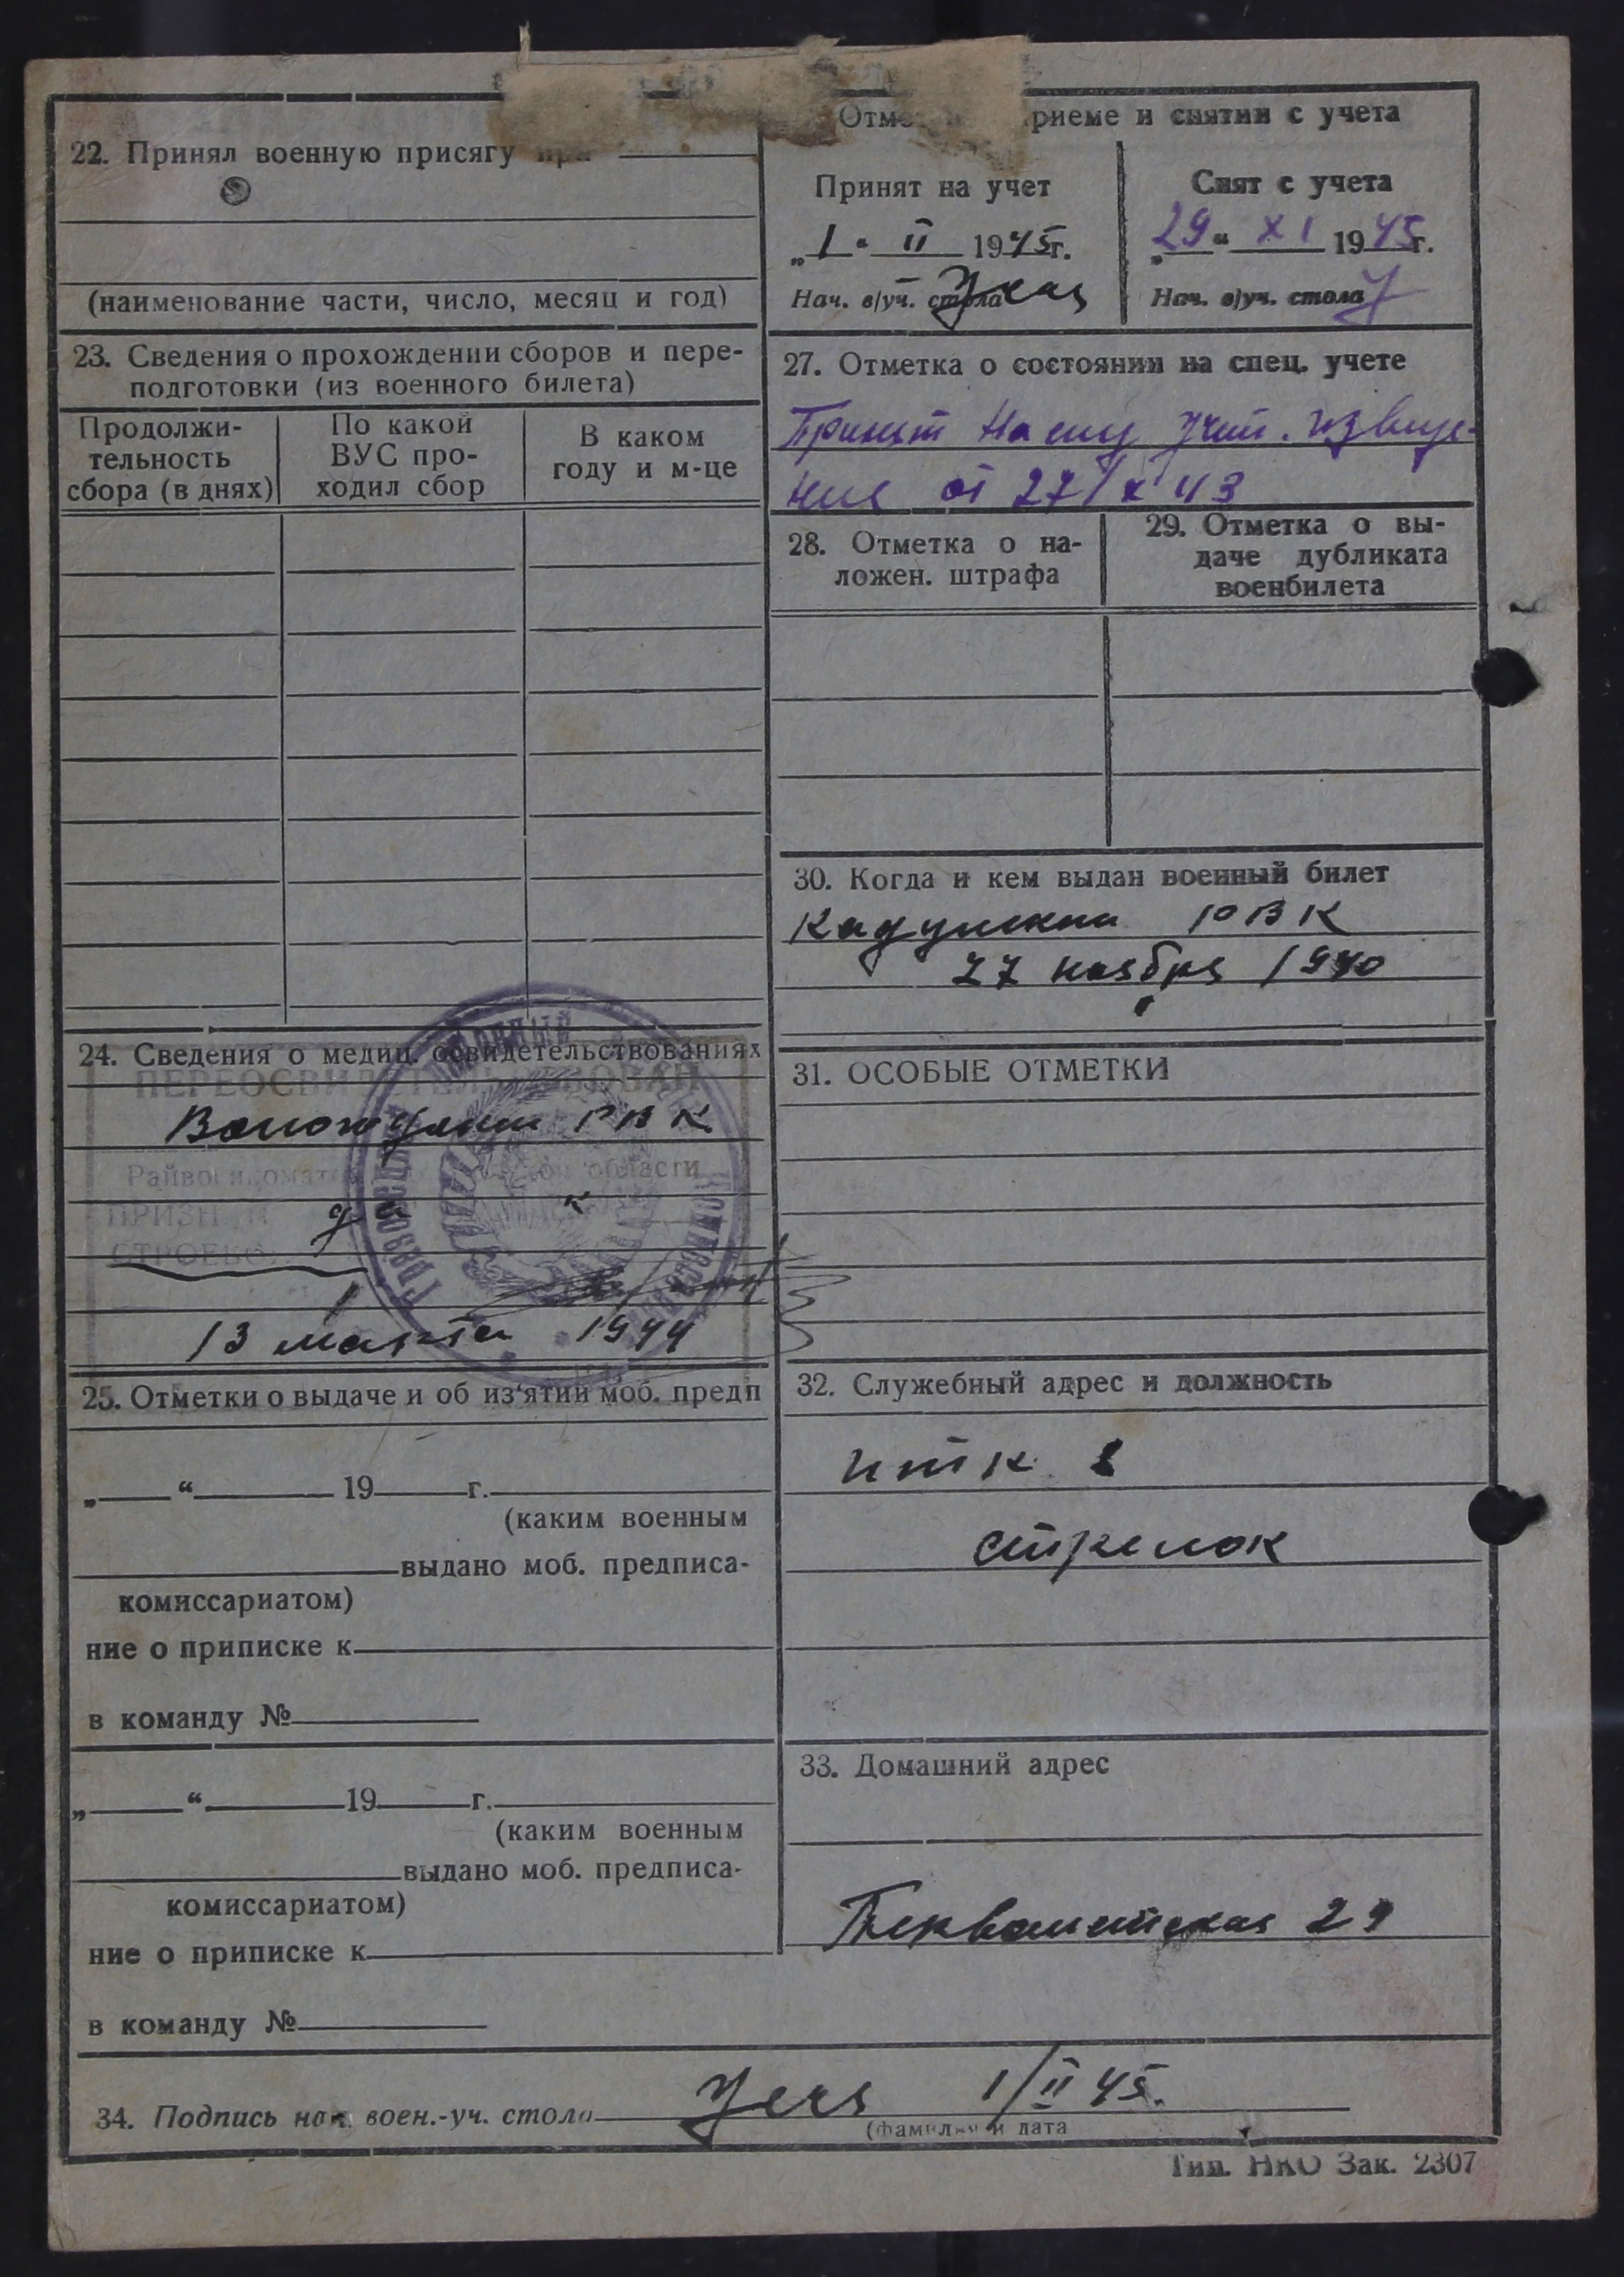 22. Принял военную присягу при
(наименование части, число, месяц и год)
23. Сведения о прохождении сборов и пере-
подготовки (из военного билета)
Продолжи-
тельность
сбора (в днях)
По какой
ВУС про-
ходил сбор
В каком
году и м-це
24. Сведения о медиц. освидетельствованиях
ПЕРЕОСВИДЕТЕЛЬСТВОВАН
РВК
области
СТРОЕВО
13 марта 1944
25. Отметки о выдаче и об из'ятии моб. предп
„ “ 19 г.
(каким военным
выдано моб. предписа-
комиссариатом)
ние о приписке к
в команду №
„ “ 19 г.
(каким военным
выдано моб. предписа-
комиссариатом)
ние о приписке к
в команду №
риеме и снятии с учета
Принят на учет
„1“ II 1945г.
Нач. в/уч. стола
Снят с учета
„29“ XI 1945г.
Нач. в/уч. стола
27. Отметка о состоянии на спец. учете
Принят на спец учет. извеще-
ния от 27/X 43
28. Отметка о на-
ложен. штрафа
29. Отметка о вы-
даче дубликата
военбилета
30. Когда и кем выдан военный билет
Кадуйским РВК
27 ноября 1940
31. ОСОБЫЕ ОТМЕТКИ
32. Служебный адрес и должность
ИТК
стрелок
33. Домашний адрес
Первомайская 29
34. Подпись нач. воен.-уч. стола 1/II 45.
(фамилия и дата
Тип. НКО Зак. 2307